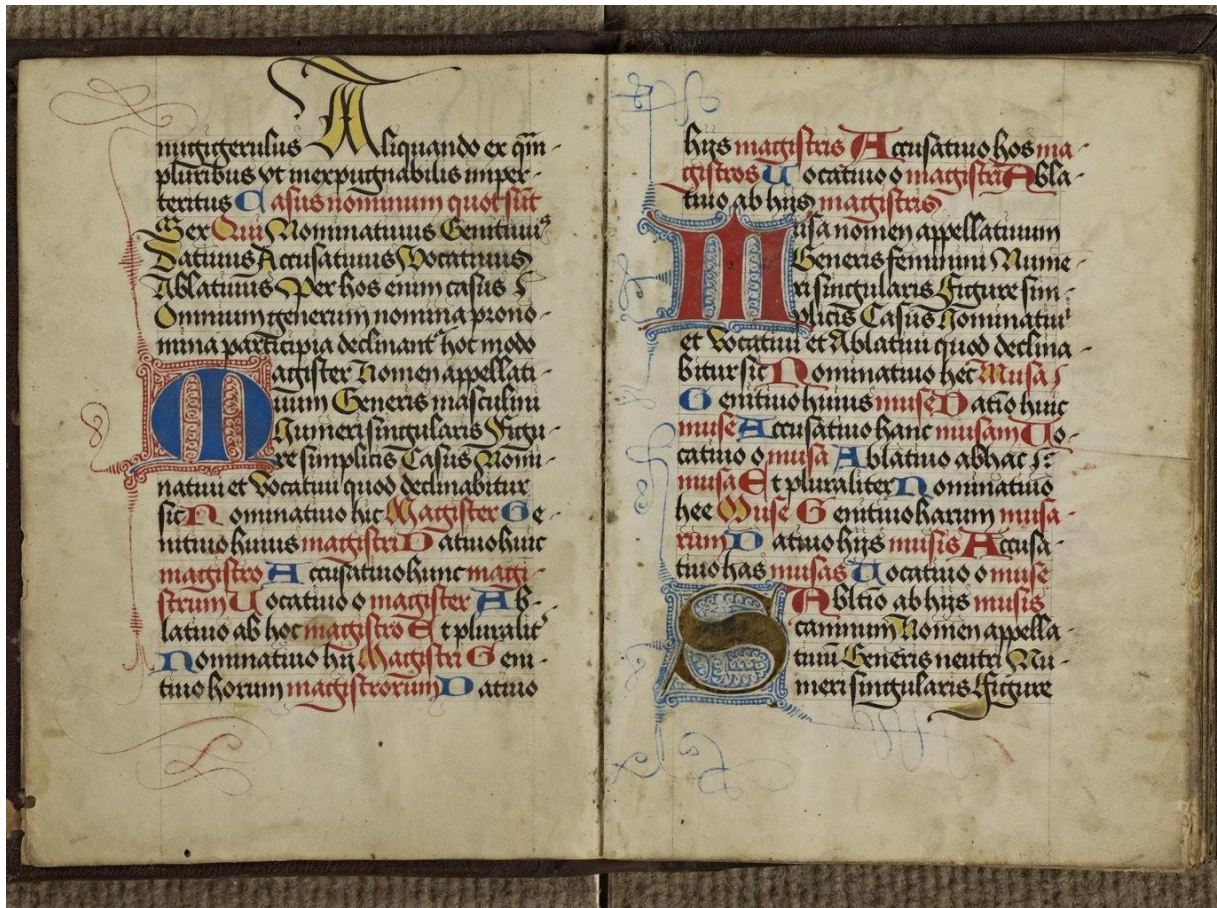 nugigerulus Aliquando ex qm̄
pluribus vt inexpugnabilis imper-
territus Casus nominum quot sūt
Sex Qui Nominatiuus Genitiuus
Datiuus Accusatiuus Vocatiuus
Ablatiuus Per hos enim casus
Omnium generum nomina prono-
mina participia declinant̄ hoc modo
Magister Nomen appellati-
uum Generis masculini
Numeri singularis Figu-
re simplicis Casus Nomi-
natiui et Vocatiui quod declinabitur
sic Nominatiuo hic Magister Ge-
nitiuo huius magistri Datiuo huic
magistro Accusatiuo hunc magi-
strum Uocatiuo o magister Ab-
latiuo ab hoc magistro Et pluralit᷑
Nominatiuo hij Magistri Geni-
tiuo horum magistrorum Datiuo
hijs magistris Accusatiuo hos ma-
gistros Uocatiuo o magistri Abla-
tiuo ab hijs magistris
Musa nomen appellatiuum
Generis feminini Nume-
ri singularis Figure sim-
plicis Casus Nominatiui
et Vocatiui et Ablatiui quod declina-
bitur sic Nominatiuo hec Musa
Genitiuo huius muse Datiō huic
muse Accusatiuo hanc musam Uo-
catiuo o musa Ablatiuo ab hac
musa Et pluraliter Nominatiuo
hee Muse Genitiuo harum musa-
rum Datiuo hijs musis Accusa-
tiuo has musas Uocatiuo o muse
Abltīo ab hijs musis
Scamnum Nomen appella-
tiuū Generis neutri Nu-
meri singularis Figure